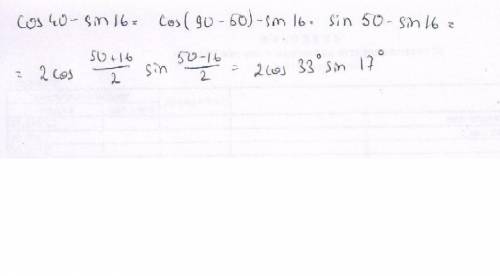 cos 40 - sin 16 = cos(90 - 50) - sin 16 = sin 50 - sin 16 =
= 2 cos \frac{50+16}{2} sin \frac{50-16}{2} = 2 cos 33° sin 17°